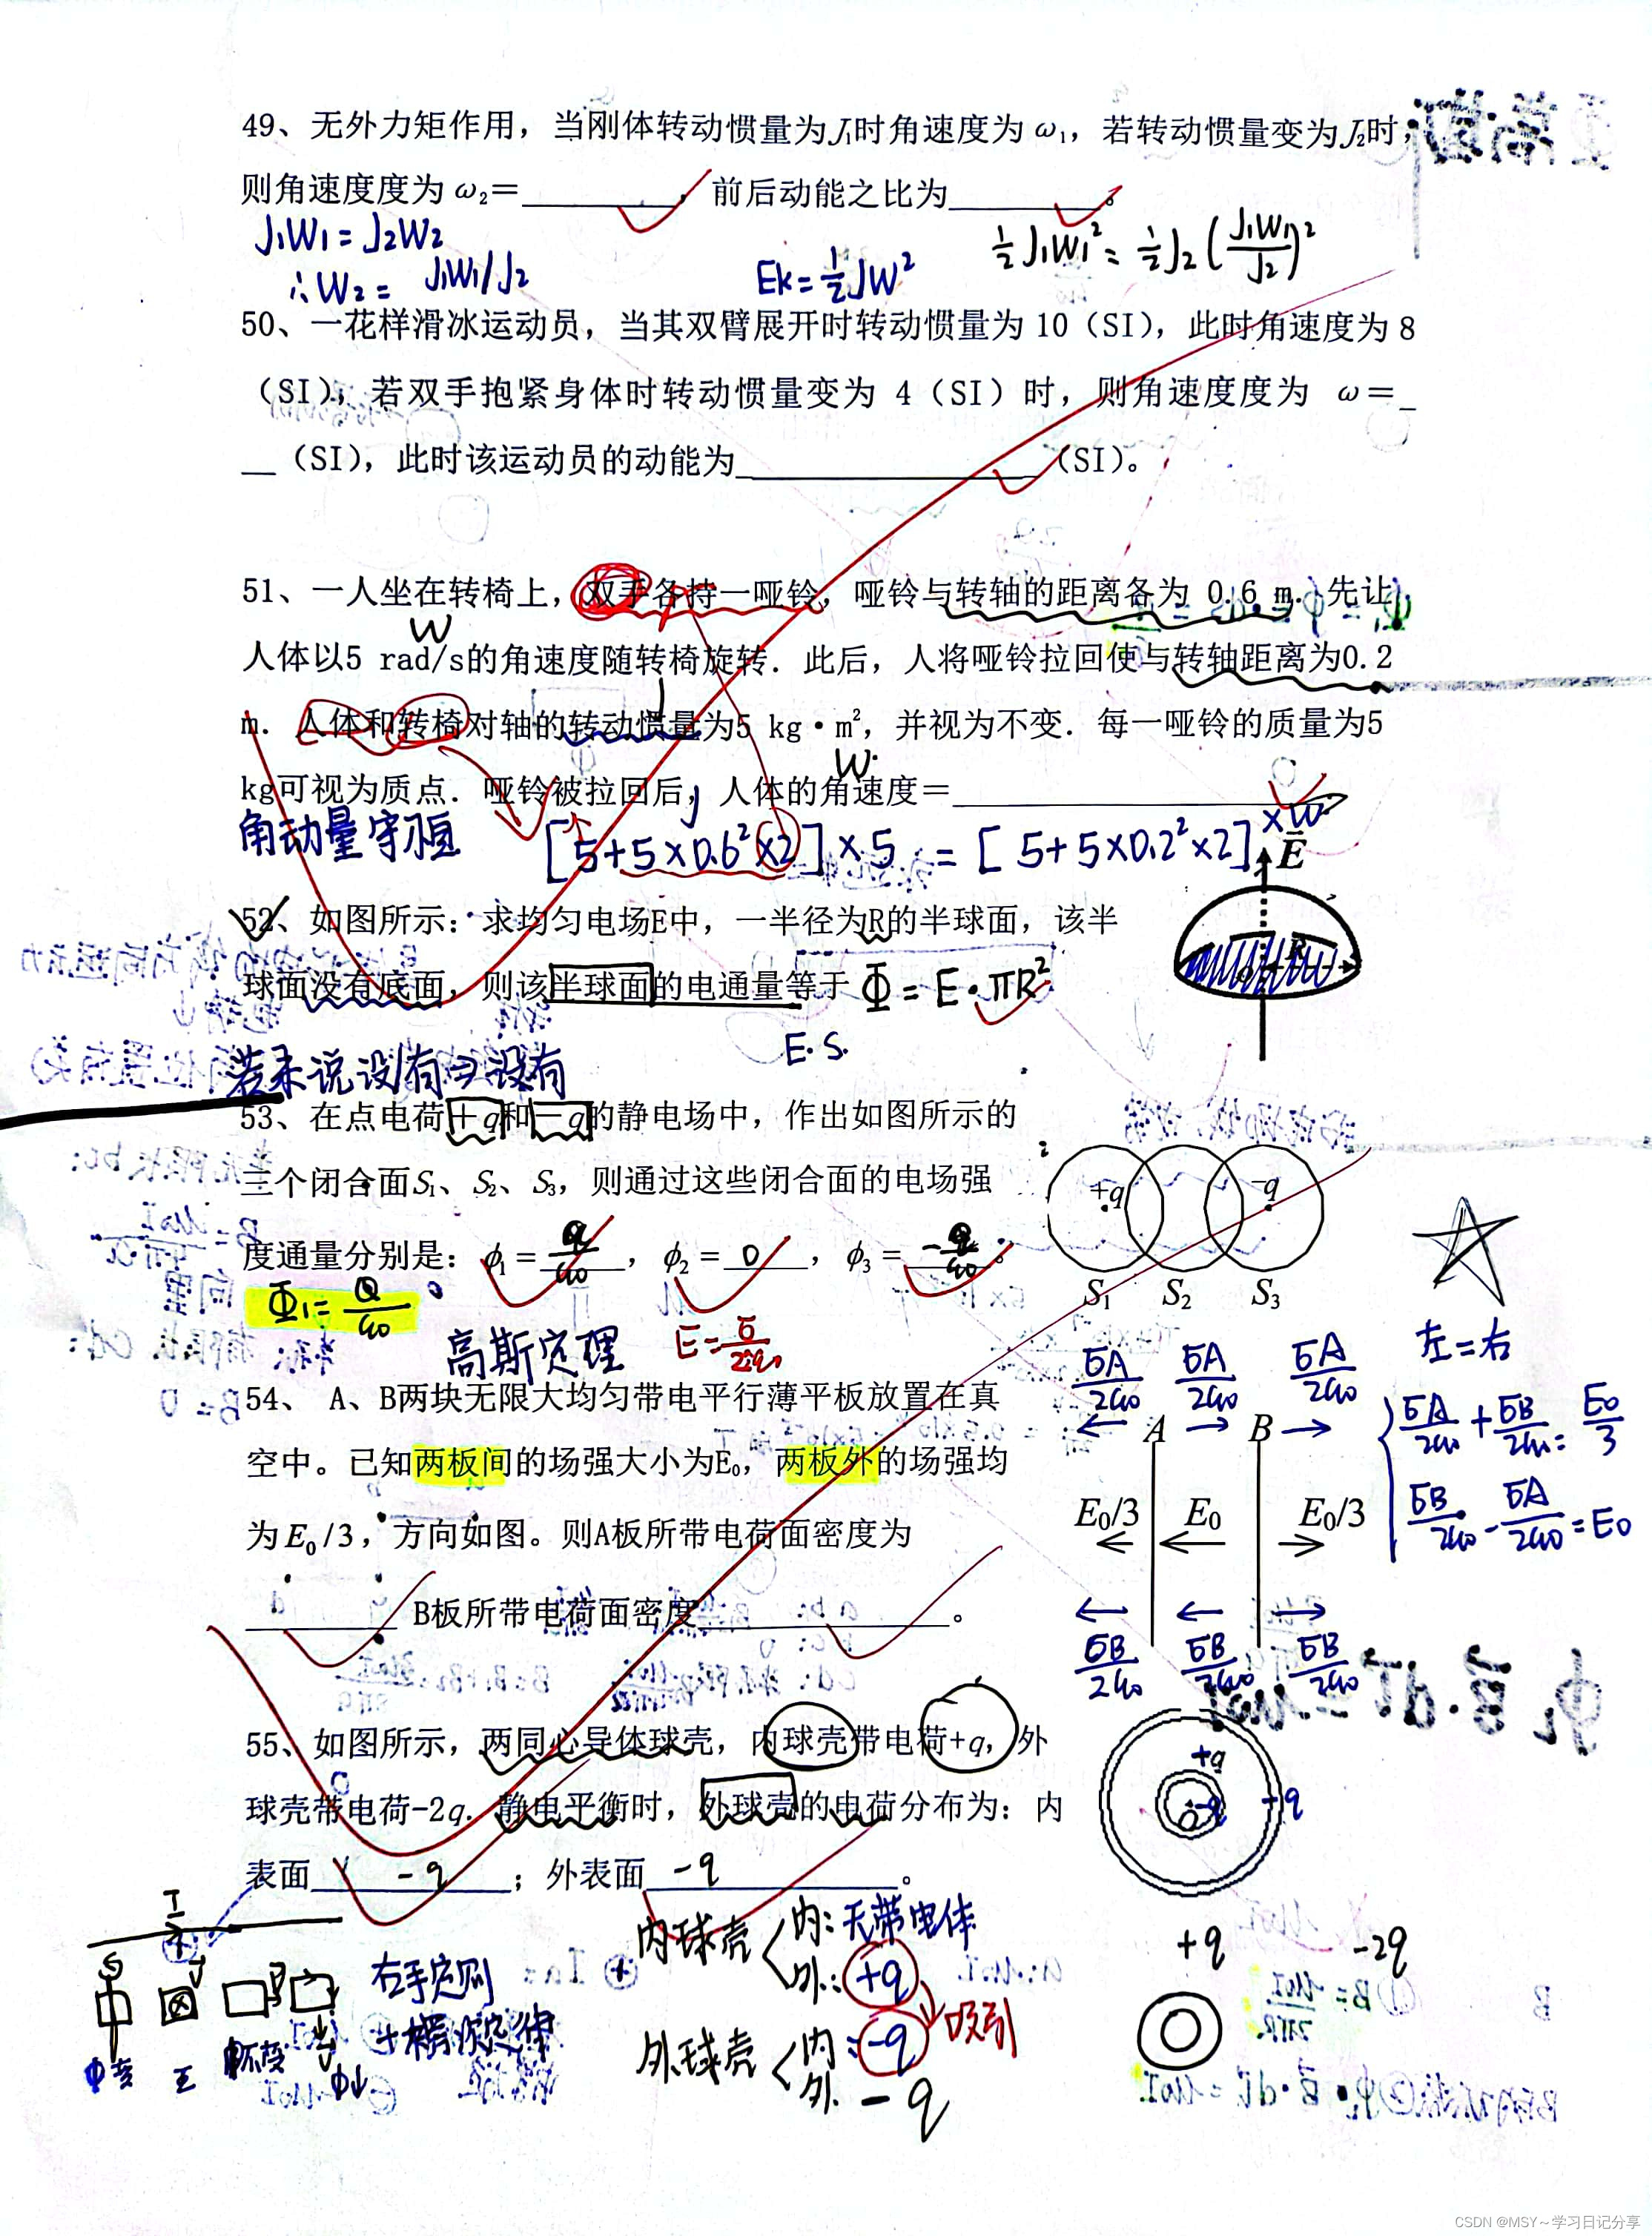 49、无外力矩作用，当刚体转动惯量为J₁时角速度为 ω₁，若转动惯量变为J₂时，
则角速度度为 ω₂＝________，前后动能之比为________。
J₁W₁＝J₂W₂
∴W₂＝ J₁W₁/J₂
Ek＝½JW²
½J₁W₁²＝½J₂(J₁W₁/J₂)²
50、一花样滑冰运动员，当其双臂展开时转动惯量为 10（SI），此时角速度为 8
（SI），若双手抱紧身体时转动惯量变为 4（SI）时，则角速度度为 ω＝_
__（SI），此时该运动员的动能为________________（SI）。
51、一人坐在转椅上，双手各持一哑铃，哑铃与转轴的距离各为 0.6 m．先让
W
人体以5 rad/s的角速度随转椅旋转．此后，人将哑铃拉回使与转轴距离为0.2
J
m．人体和转椅对轴的转动惯量为5 kg·m²，并视为不变．每一哑铃的质量为5
W
kg可视为质点．哑铃被拉回后，人体的角速度＝________________
角动量守恒
[5+5×0.6²×2]×5 = [5+5×0.2²×2]×W
E
52、如图所示：求均匀电场E中，一半径为R的半球面，该半
R
球面没有底面，则该半球面的电通量等于 Φ＝E·πR²
E·S.
若未说没有⇒没有
53、在点电荷＋q和－q的静电场中，作出如图所示的
三个闭合面S₁、S₂、S₃，则通过这些闭合面的电场强
+q
-q
度通量分别是：ϕ₁＝q/ε₀，ϕ₂＝0，ϕ₃＝-q/ε₀。
S₁ S₂ S₃
Φ₁＝Q/ε₀
高斯定理
E＝σ/2ε₀
左＝右
54、 A、B两块无限大均匀带电平行薄平板放置在真
空中。已知两板间的场强大小为E₀，两板外的场强均
为E₀/3，方向如图。则A板所带电荷面密度为
________ B板所带电荷面密度________________。
σA/2ε₀ σA/2ε₀ σA/2ε₀
A B
E₀/3 E₀ E₀/3
σB/2ε₀ σB/2ε₀ σB/2ε₀
σA/2ε₀＋σB/2ε₀＝E₀/3
σB/2ε₀－σA/2ε₀＝E₀
55、如图所示，两同心导体球壳，内球壳带电荷+q，外
球壳带电荷-2q．静电平衡时，外球壳的电荷分布为：内
表面 -q ；外表面 -q 。
+q
-q
-q
O
内球壳 内：无带电体
外：+q
吸引
外球壳 内：-q
外 -q
+q -2q
I
右手定则
+楞次定律
Φ变
Φ不变
Φ↓
CSDN @MSY～学习日记分享